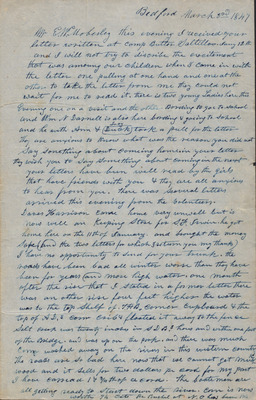 Bedford March 2nd 1847
Mr this evening I received your
letter written at Camp Butler Saltillo Jany 13th
and I will not try to describe the excitement
that was among our children when I came in with
the letter one pulling at one hand and one at the
other to take the letter from me they could not
wait for me to read it there is two young Ladies here this
Evening one on a visit and the other Boarding to go to school
and Wm N Darnell is also here boarding & going to School
and he with Ann & took a pull for the letter
For are anxious to know what was the reason you did not
Say Something about Coming home in your letter
they wish you to Say Something about coming in the next
your letters have been well read by the girls
that have friends with you & they are all anxious
to hear from you there was Several letters
arrived this evening from the Volunteers
Davis Harrison came home very unwell but is
now well and Keeping Store for he got
home here on the 11th of January and brought the money
safe and the two letters for which return you my thanks
I have no opportunity to Send for your Trunk the
roads have been bad all winter worse than they have
been for years two more high waters one month
after the rise that I stated in a former letter there
was an other rise four feet higher the water
was to the top Shelf of corner Cupboard & the
top of & corn Crib & floated it away to the fence
Salt creek was twenty inches in house and with one foot
of the Bridge and was up on the park and there was much
Corn washed away on the rivers in this western country
the roads are so bad here now that we cannot get much
wood and it sells for two dollars pr cord for my part
I have carried on foot a cord The boatmen are
all getting ready to start down the river Corn is now
worth